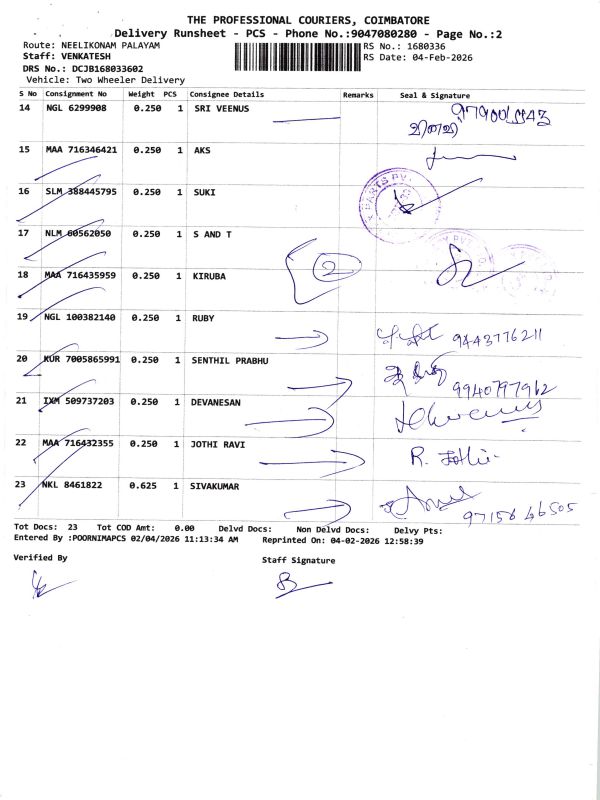 THE PROFESSIONAL COURIERS, COIMBATORE
Delivery Runsheet - PCS - Phone No.:9047080280 - Page No.:2
Route: NEELIKONAM PALAYAM RS No.: 1680336
Staff: VENKATESH RS Date: 04-Feb-2026
DRS No.: DCJB168033602
Vehicle: Two Wheeler Delivery
S No Consignment No Weight PCS Consignee Details Remarks Seal & Signature
14 NGL 6299908 0.250 1 SRI VEENUS
15 MAA 716346421 0.250 1 AKS
16 SLM 388445795 0.250 1 SUKI
17 NLM 60562050 0.250 1 S AND T
18 MAA 716435959 0.250 1 KIRUBA 2
19 NGL 100382140 0.250 1 RUBY 9443776211
20 KUR 7005865991 0.250 1 SENTHIL PRABHU 9940797962
21 IXM 509737203 0.250 1 DEVANESAN
22 MAA 716432355 0.250 1 JOTHI RAVI R. Jothi
23 NKL 8461822 0.625 1 SIVAKUMAR 9715646505
Tot Docs: 23 Tot COD Amt: 0.00 Delvd Docs: Non Delvd Docs: Delvy Pts:
Entered By :POORNIMAPCS 02/04/2026 11:13:34 AM Reprinted On: 04-02-2026 12:58:39
Verified By Staff Signature